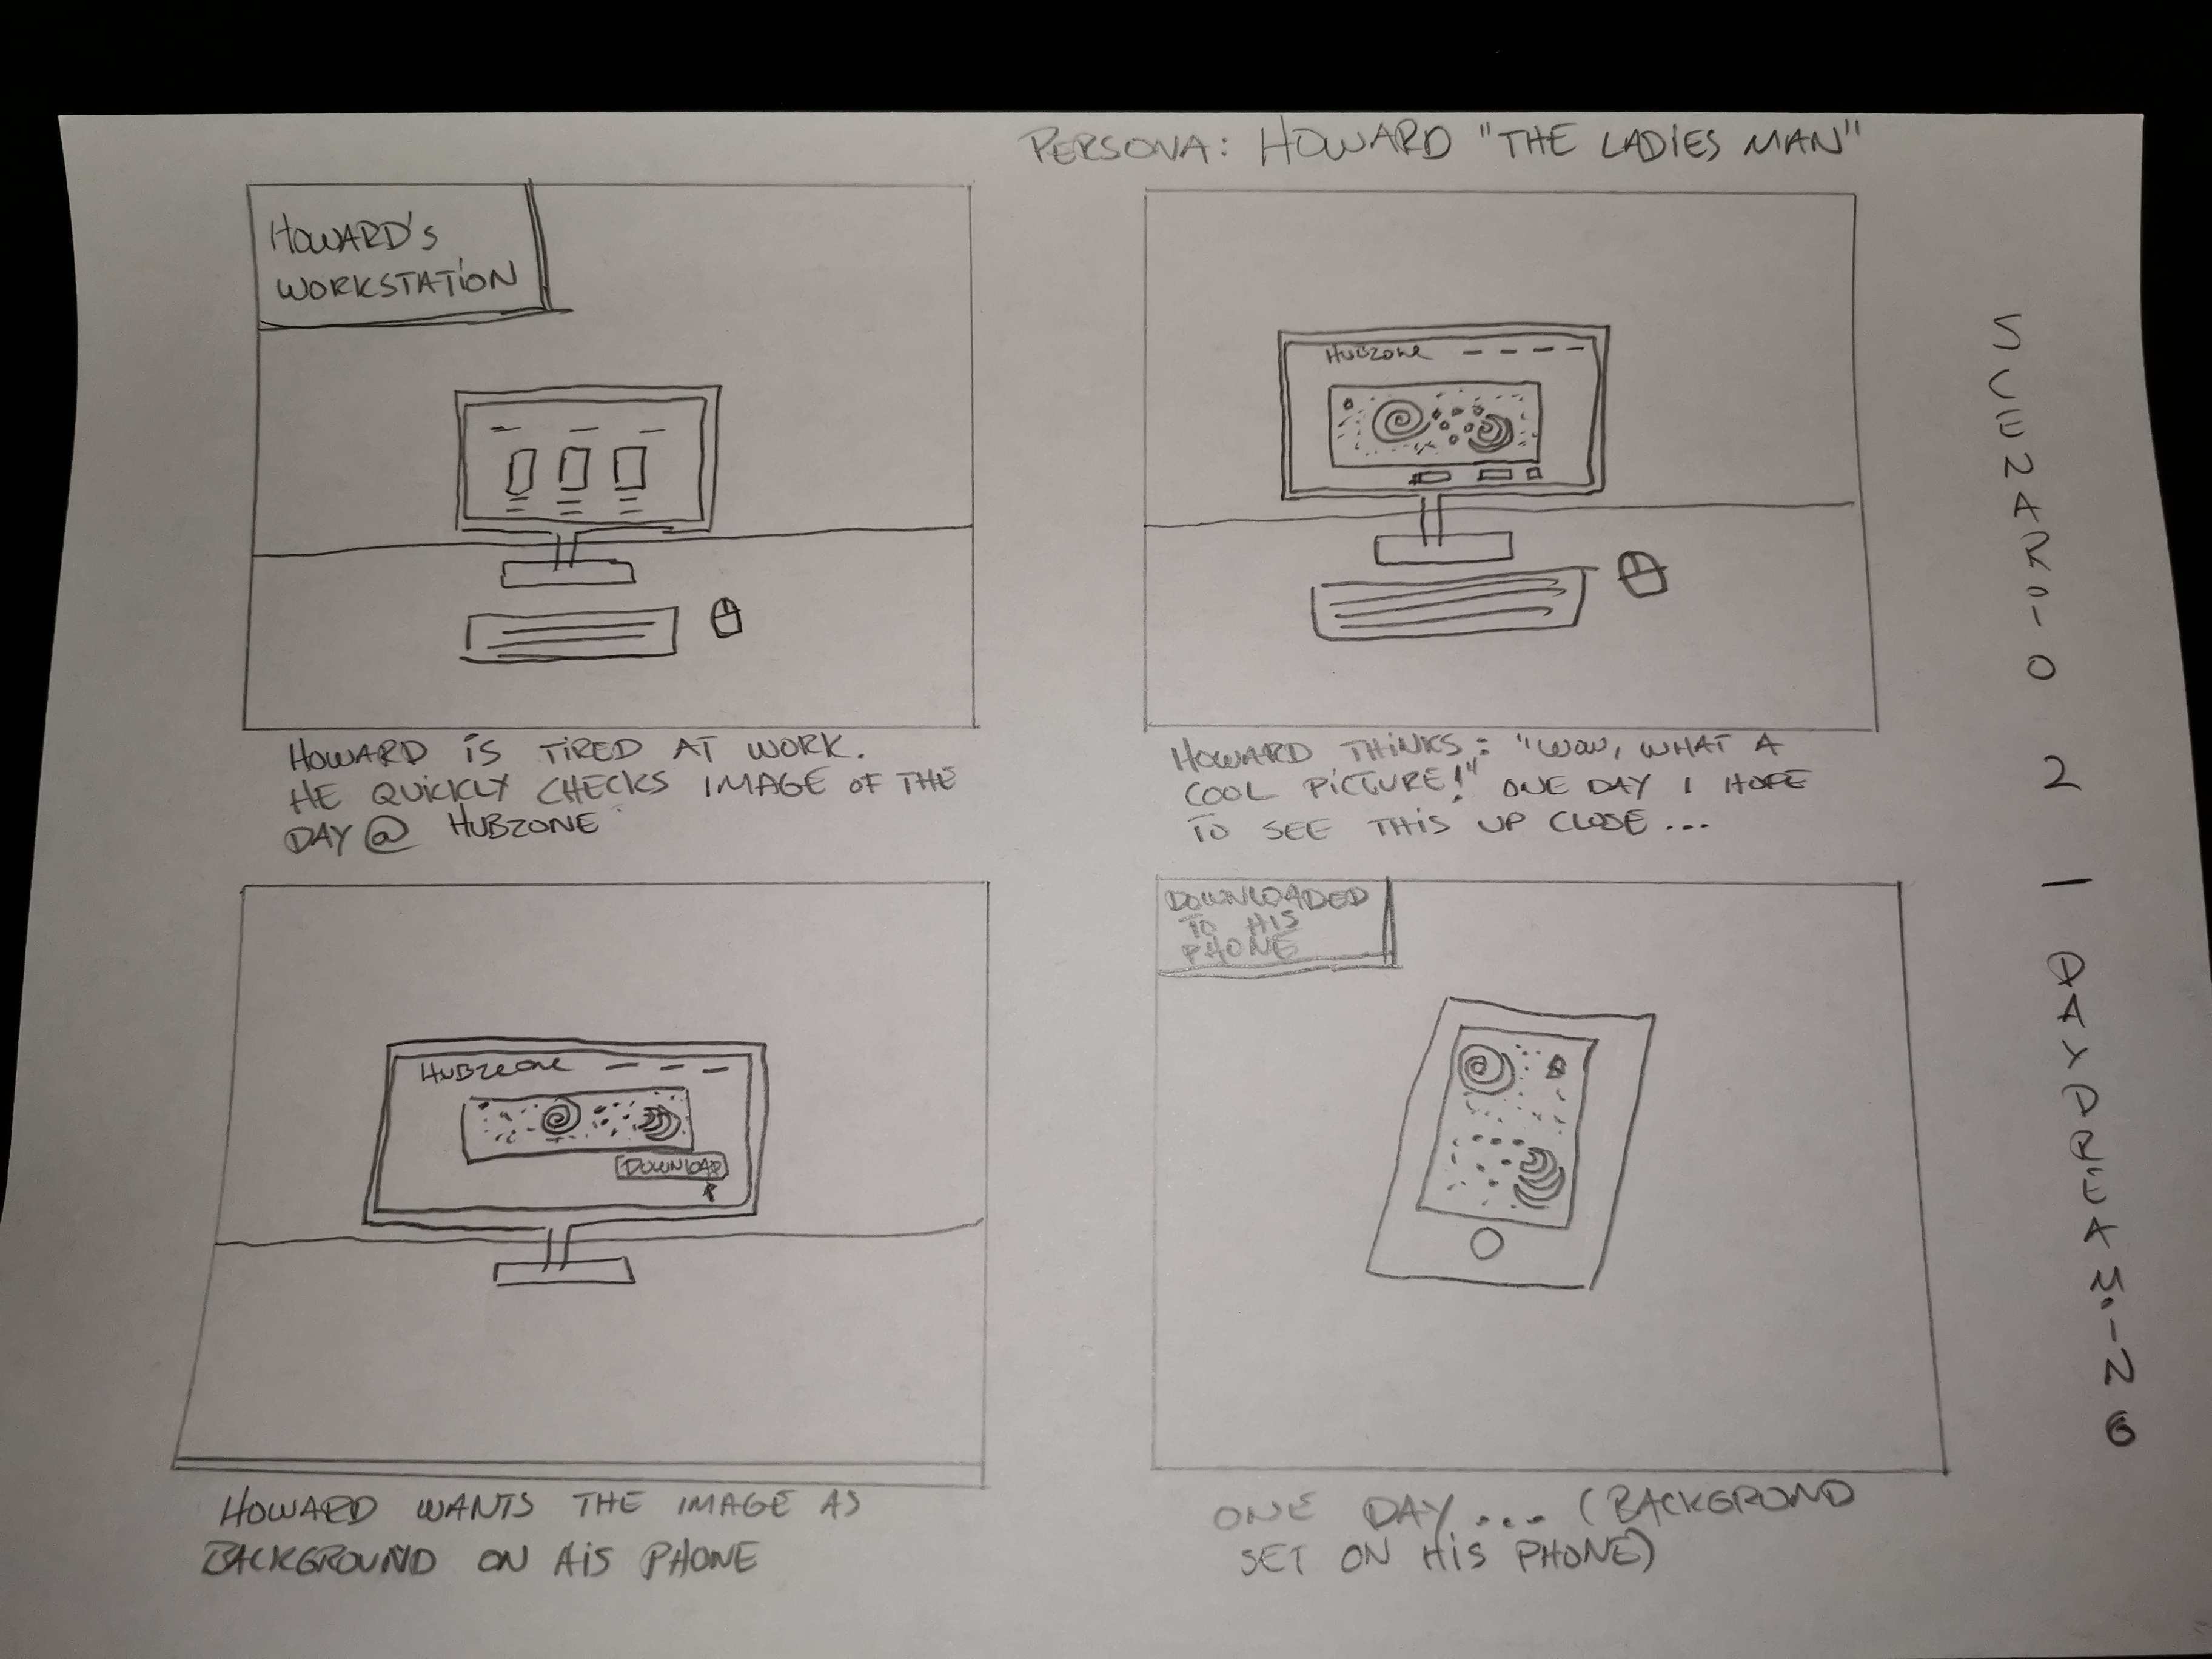 PERSONA: HOWARD "THE LADIES MAN"
HOWARD'S
WORKSTATION
HOWARD IS TIRED AT WORK.
HE QUICKLY CHECKS IMAGE OF THE
DAY @ HUBZONE
HUBZONE
HOWARD THINKS: "WOW, WHAT A
COOL PICTURE!" ONE DAY I HOPE
TO SEE THIS UP CLOSE...
HUBZONE
DOWNLOAD
HOWARD WANTS THE IMAGE AS
BACKGROUND ON HIS PHONE
DOWNLOADED
TO HIS
PHONE
ONE DAY.... (BACKGROND
SET ON HIS PHONE)
SCENARIO 2 - DAYDREAMING